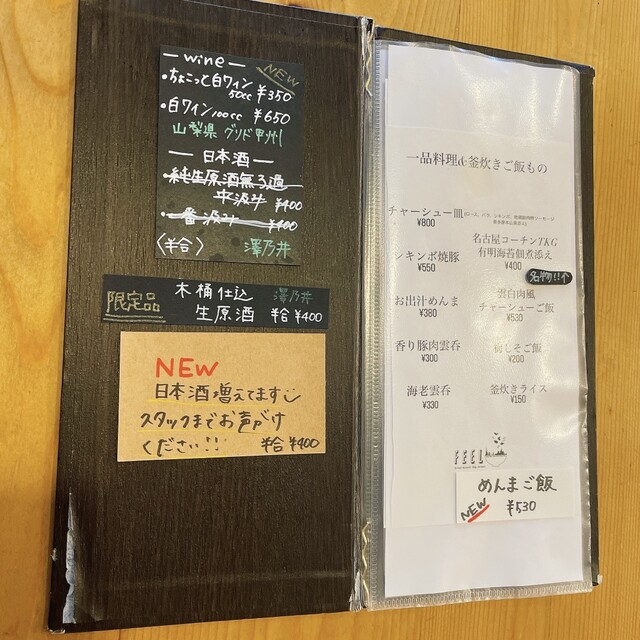 — wine —
NEW
・ちょこっと白ワイン
50cc ¥350
・白ワイン100cc ¥650
山梨県 グリド甲州
— 日本酒 —
・純生原酒無ろ過
中汲み ¥400
・一番汲み ¥400
〈半合〉 澤乃井
限定品
木桶仕込 澤乃井
生原酒 半合 ¥400
NEW
日本酒増えてます
スタッフまでお声がけ
ください!! 半合 ¥400
一品料理&釜炊きご飯もの
チャーシュー皿
¥800
シキンボ焼豚
¥550
お出汁めんま
¥380
香り豚肉雲呑
¥300
海老雲呑
¥330
名古屋コーチンTKG
有明海苔佃煮添え
¥400
名物!!↑
雲白肉風
チャーシューご飯
¥530
梅しそご飯
¥200
釜炊きライス
¥150
FEEL
めんまご飯
NEW ¥530